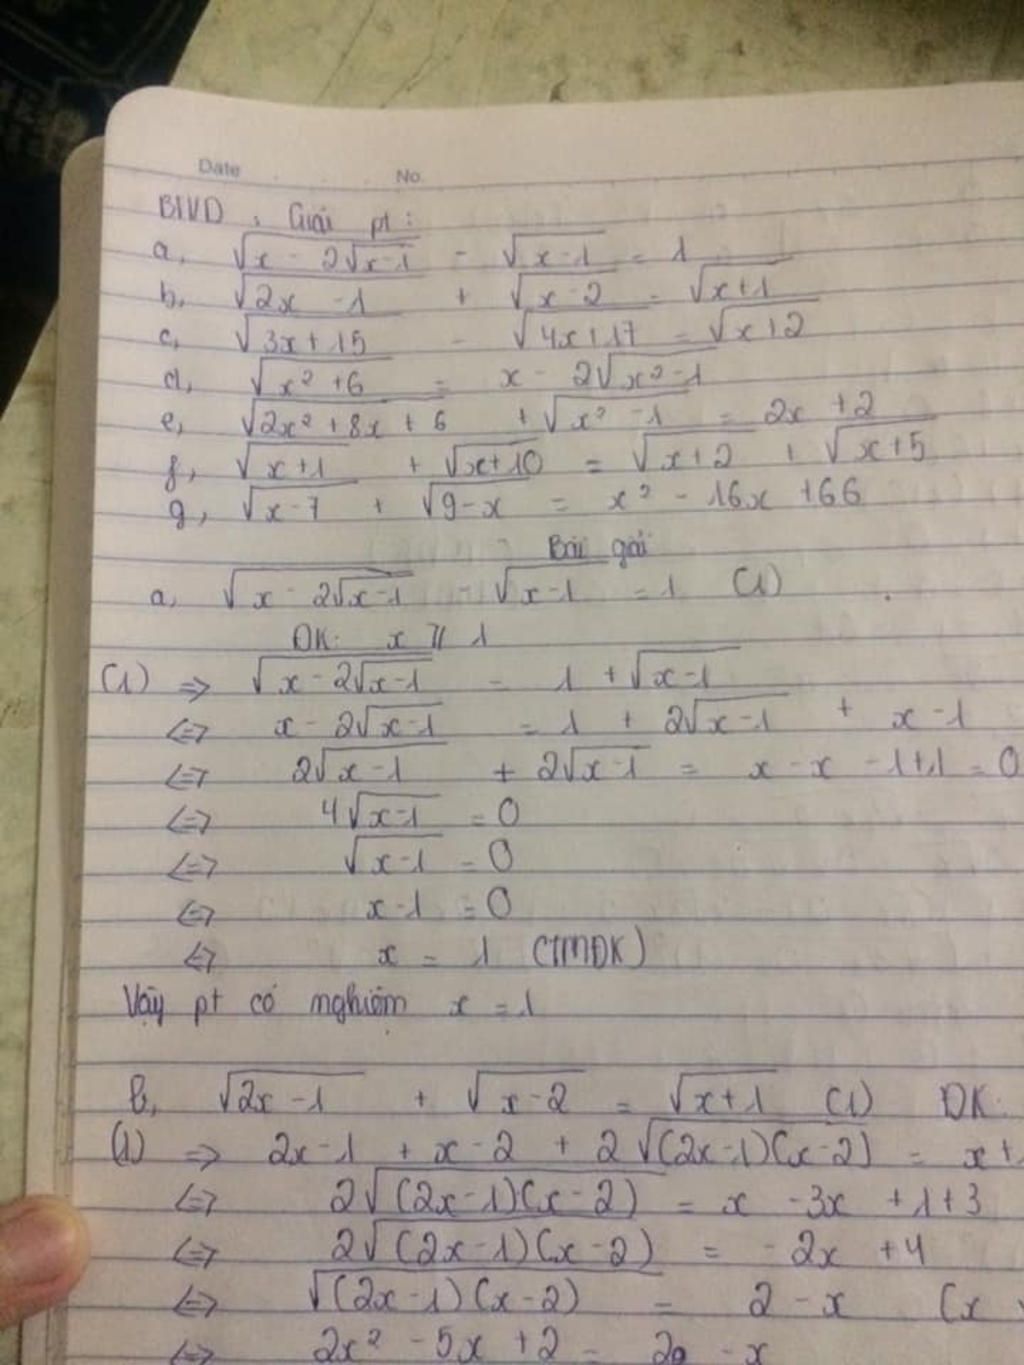 Date No
BTVD : Giải pt :
a, √(x - 2√(x-1)) - √(x-1) = 1
b, √(2x - 1) + √(x-2) = √(x+1)
c, √(3x+15) - √(4x+17) = √(x+2)
d, √(x² +6) = x - 2√(x²-1)
e, √(2x² + 8x + 6) + √(x² -1) = 2x +2
f, √(x+1) + √(x+10) = √(x+2) + √(x+5)
g, √(x-7) + √(9-x) = x² - 16x +66
Bài giải
a, √(x - 2√(x-1)) - √(x-1) = 1 (1)
ĐK: x ≥ 1
(1) => √(x - 2√(x-1)) = 1 + √(x-1)
<=> x - 2√(x-1) = 1 + 2√(x-1) + x - 1
<=> 2√(x-1) + 2√(x-1) = x - x - 1+1 = 0
<=> 4√(x-1) = 0
<=> √(x-1) = 0
<=> x-1 = 0
<=> x = 1 (TMĐK)
Vậy pt có nghiệm x = 1
b, √(2x-1) + √(x-2) = √(x+1) (1) ĐK:
(1) => 2x-1 + x-2 + 2√((2x-1)(x-2)) = x+
<=> 2√((2x-1)(x-2)) = x -3x +1+3
<=> 2√((2x-1)(x-2)) = -2x +4
<=> √((2x-1)(x-2)) = 2-x (x
<=> 2x² - 5x + 2 = - x